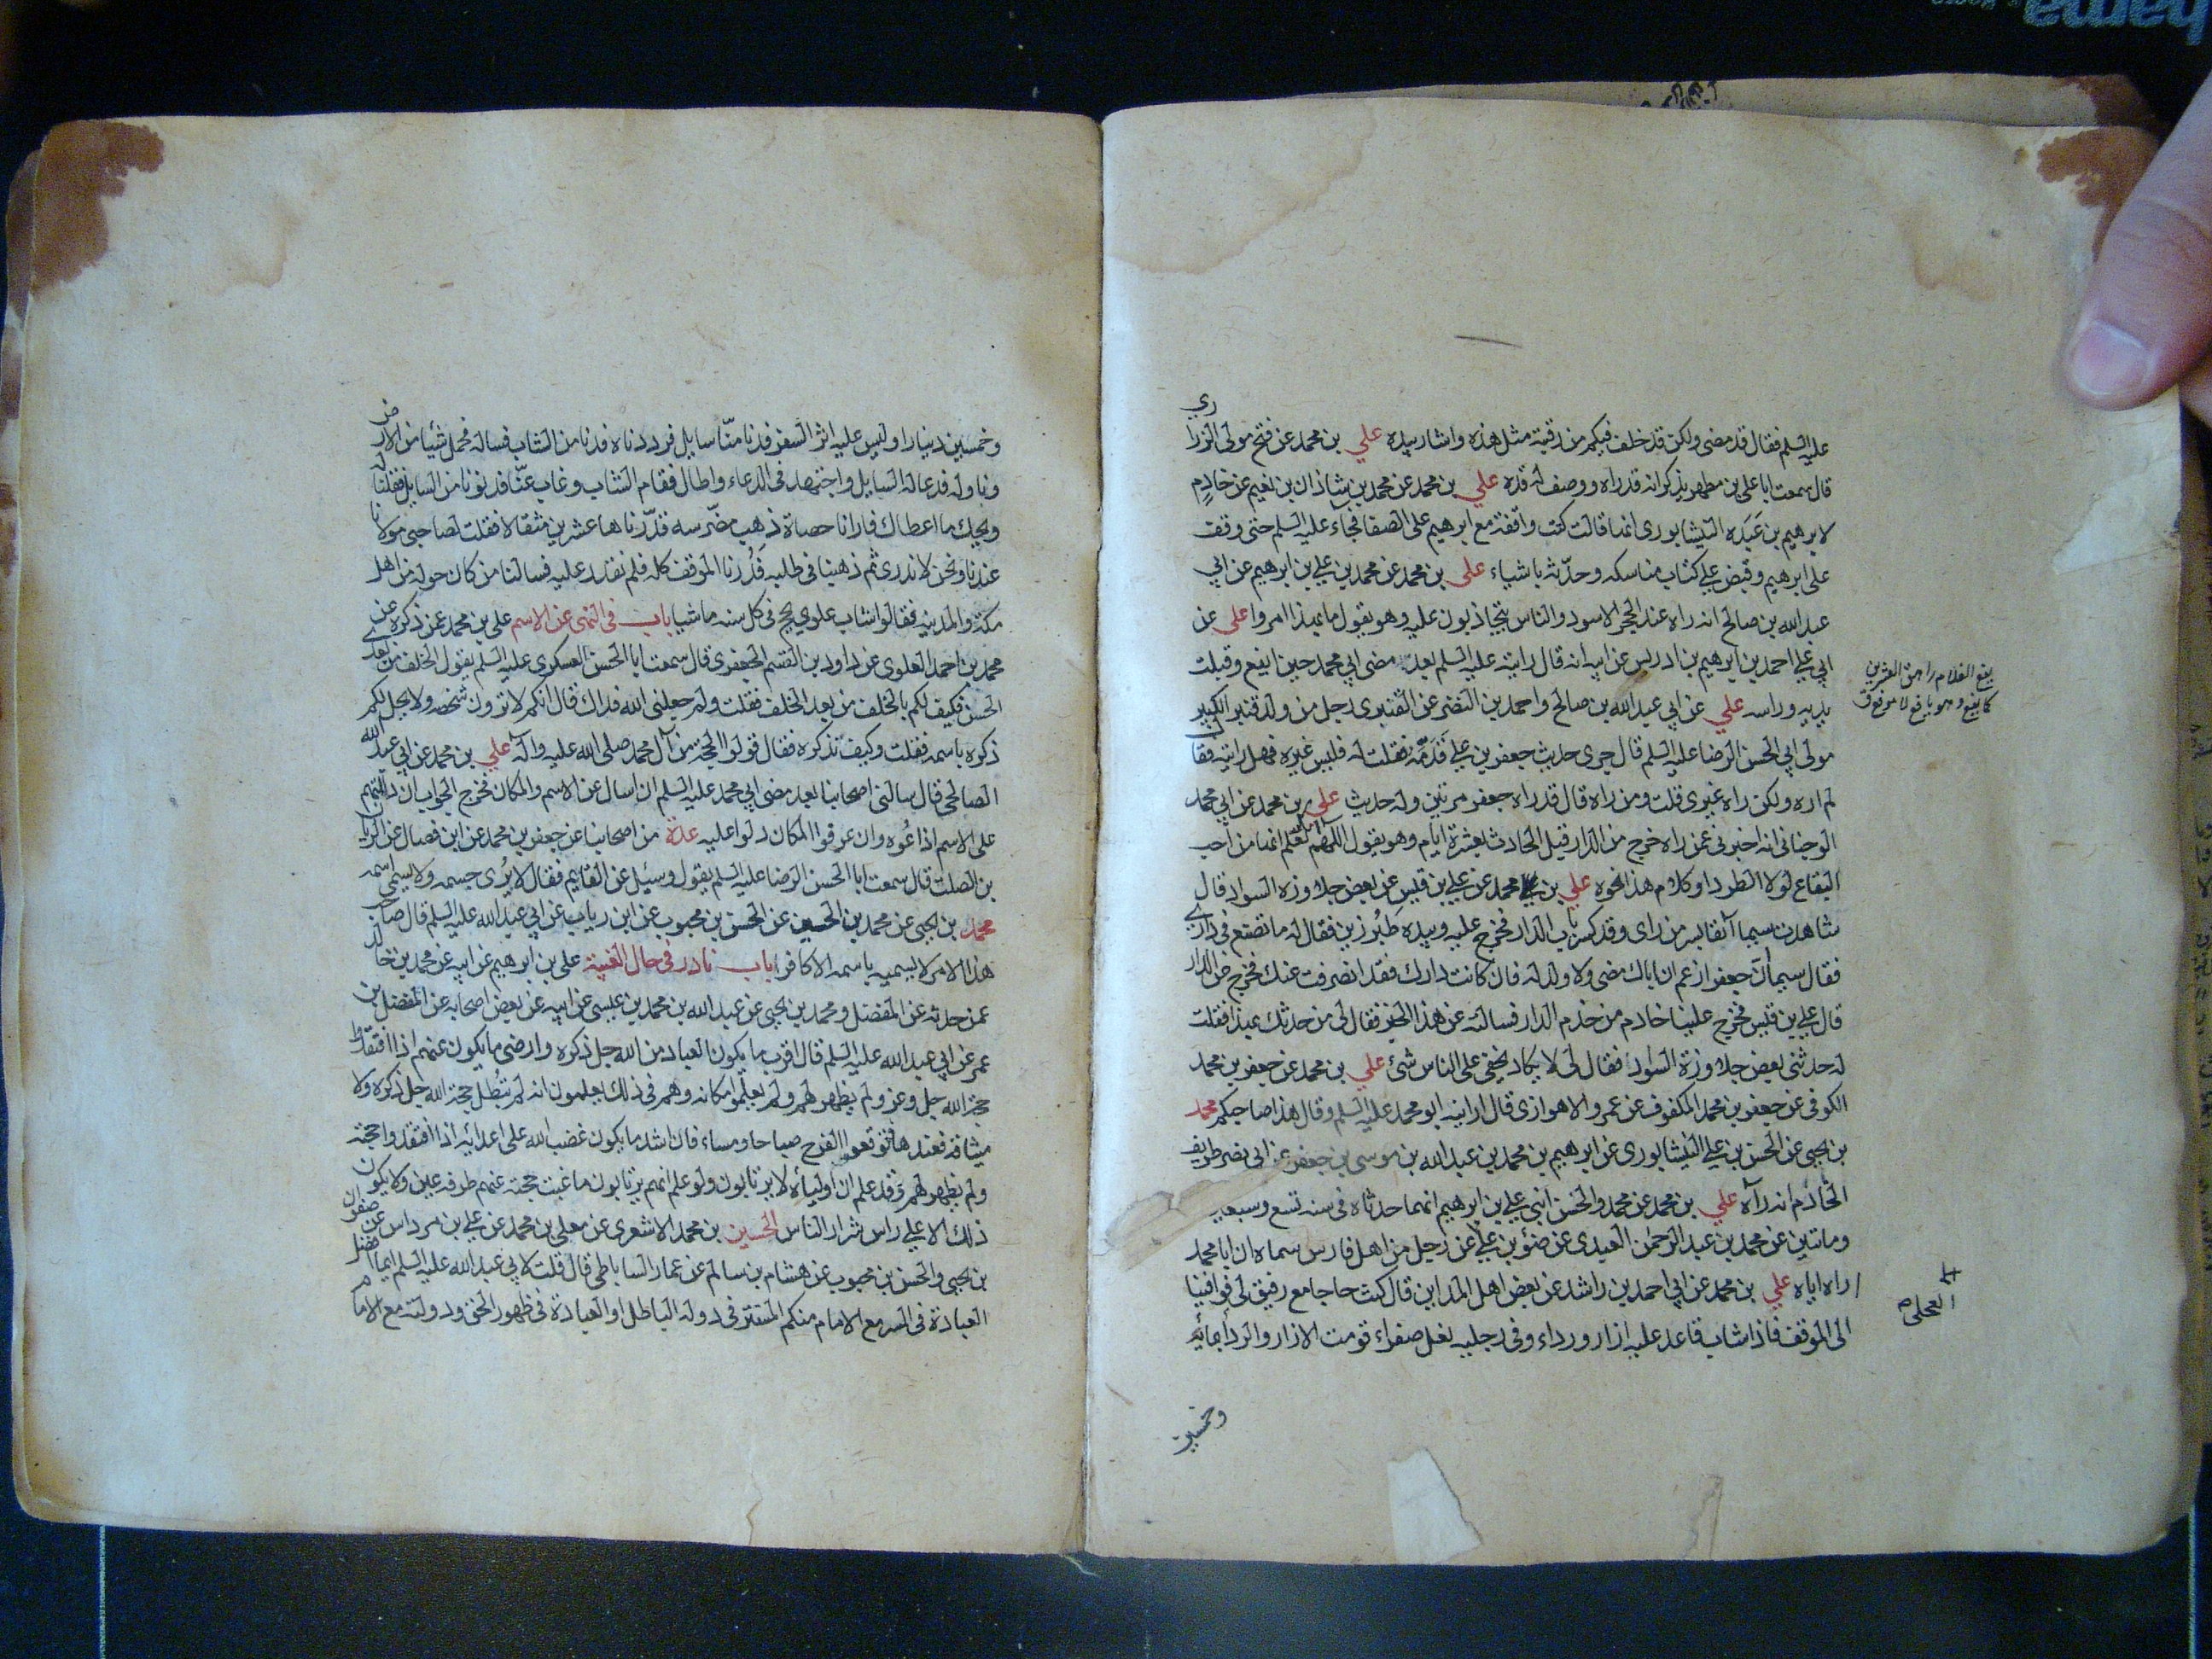 عليه السلم فقال قد مضى ولكن قد خلف فيكم من رقبته مثل هذه واشار بيده علي بن محمد عن فتح مولى الزراري
قال سمعت ابا علي بن مطهر يذكر انه قد راه ووصف له قده علي بن محمد عن محمد بن شاذان بن نعيم عن خادم
لابرهيم بن عبده النيشابوري انها قالت كنت واقفة مع ابرهيم على الصفا فجاء عليه السلم حتى وقف
على ابرهيم وقبض على كتاب مناسكه وحدثه باشياء علي بن محمد عن محمد بن علي بن ابرهيم عن ابي
عبد الله بن صالح انه راه عند الحجر الاسود والناس يتجاذبون عليه وهو يقول ما بهذا امروا علي عن
ابي علي احمد بن ابرهيم بن ادريس عن ابيه انه قال رايته عليه السلم بعد مضى ابي محمد حين ايفع وقبلت
يديه وراسه علي عن ابي عبد الله بن صالح واحمد بن النضر عن القنبري رجل من ولد قنبر الكبير
مولى ابي الحسن الرضا عليه السلم قال جرى حديث جعفر بن علي فذمه فقلت له فليس غيره فهل رايته فقال
لم اره ولكن راه غيري قلت ومن راه قال قد راه جعفر مرتين وله حديث علي بن محمد عن ابي محمد
الوجناني انه اخبرني عمن راه خرج من الدار قبل الحادث بعشرة ايام وهو يقول اللهم انك تعلم انها من احب
البقاع لولا الطرد او كلام هذا نحوه علي بن محمد عن علي بن قيس عن بعض جلاوزة السواد قال
شاهدت سيما آنفا بسر من راى وقد كسر باب الدار فخرج عليه وبيده طبرزين فقال له ما تصنع في داري
فقال سيما ان جعفرا زعم ان اباك مضى ولا ولد له فان كانت دارك فقد انصرفت عنك فخرج عن الدار
قال علي بن قيس فخرج علينا خادم من خدم الدار فسالته عن هذا الخبر فقال لي من حدثك بهذا فقلت
له حدثني بعض جلاوزة السواد فقال لي لا يكاد يخفى على الناس شئ علي بن محمد عن جعفر بن محمد
الكوفي عن جعفر بن محمد المكفوف عن عمرو الاهوازي قال ارانيه ابو محمد عليه السلم وقال هذا صاحبكم محمد
بن يحيى عن الحسن بن علي النيشابوري عن ابرهيم بن محمد بن عبد الله بن موسى بن جعفر عن ابي نصر طريف
الخادم انه رآه علي بن محمد عن محمد والحسن ابني علي بن ابرهيم انهما حدثاه في سنه تسع وسبعين
وماتين عن محمد بن عبد الرحمن العبدي عن ضوء بن علي عن رجل من اهل فارس سماه ان ابا محمد
راه اياه علي بن محمد عن ابي احمد بن راشد عن بعض اهل المداين قال كنت حاجا مع رفيق لي فوافينا
الى الموقف فاذا شاب قاعد عليه ازار ورداء وفي رجليه نعل صفراء قومت الازار والرداء بمائة
وخمسين
العجلي
وخمسين دينارا وليس عليه اثر السفر فدنا منا سايل فرددناه فدنا من الشاب فساله فحمل شيئا من الارض
وناوله فدعا له السايل واجتهد في الدعاء واطال فقام الشاب وغاب عنا فدنونا من السايل فقلنا له
ويحك ما اعطاك فارانا حصاة ذهب مضرسه قدرناها عشرين مثقالا فقلت لصاحبي مولانا
عندنا ونحن لا ندري ثم ذهبنا في طلبه فدرنا الموقف كله فلم نقدر عليه فسالنا من كان حوله من اهل
مكة والمدينه فقالوا شاب علوي يحج في كل سنه ماشيا باب في النهي عن الاسم علي بن محمد عمن ذكره عن
محمد بن احمد العلوي عن داود بن القسم الجعفري قال سمعت ابا الحسن العسكري عليه السلم يقول الخلف من بعدي
الحسن فكيف لكم بالخلف من بعد الخلف فقلت ولم جعلني الله فداك قال انكم لا ترون شخصه ولا يحل لكم
ذكره باسمه فقلت وكيف نذكره فقال قولوا الحجة من آل محمد صلى الله عليه واله علي بن محمد عن ابي عبد الله
الصالحي قال سالني اصحابنا بعد مضى ابي محمد عليه السلم ان اسال عن الاسم والمكان فخرج الجواب ان دللتهم
على الاسم اذاعوه وان عرفوا المكان دلوا عليه عدة من اصحابنا عن جعفر بن محمد عن ابن فضال عن الريان
بن الصلت قال سمعت ابا الحسن الرضا عليه السلم يقول وسئل عن القايم فقال لا يرى جسمه ولا يسمى اسمه
محمد بن يحيى عن محمد بن الحسين عن الحسن بن محبوب عن ابن رياب عن ابي عبد الله عليه السلم قال صاحب
هذا الامر لا يسميه باسمه الا كافر باب نادر في حال الغيبة علي بن ابرهيم عن ابيه عن محمد بن خالد
عمن حدثه عن المفضل ومحمد بن يحيى عن عبد الله بن محمد بن عيسى عن ابيه عن بعض اصحابه عن المفضل بن
عمر عن ابي عبد الله عليه السلم قال اقرب ما يكون العباد من الله جل ذكره وارضى ما يكون عنهم اذا افتقدوا
حجة الله جل وعز ولم يظهر لهم ولم يعلموا مكانه وهم في ذلك يعلمون انه لم تبطل حجة الله جل ذكره ولا
ميثاقه فعندها فتوقعوا الفرج صباحا ومساء فان اشد ما يكون غضب الله على اعدائه اذا افتقدوا حجته
ولم يظهر لهم وقد علم ان اولياءه لا يرتابون ولو علم انهم يرتابون ما غيب حجته عنهم طرفه عين ولا يكون
ذلك الا على راس شرار الناس الحسين بن محمد الاشعري عن معلى بن محمد عن علي بن مرداس عن صفوان
بن يحيى والحسن بن محبوب عن هشام بن سالم عن عمار الساباطي قال قلت لابي عبد الله عليه السلم ايما افضل
العبادة في السر مع الامام منكم المستتر في دولة الباطل او العبادة في ظهور الحق ودولته مع الامام